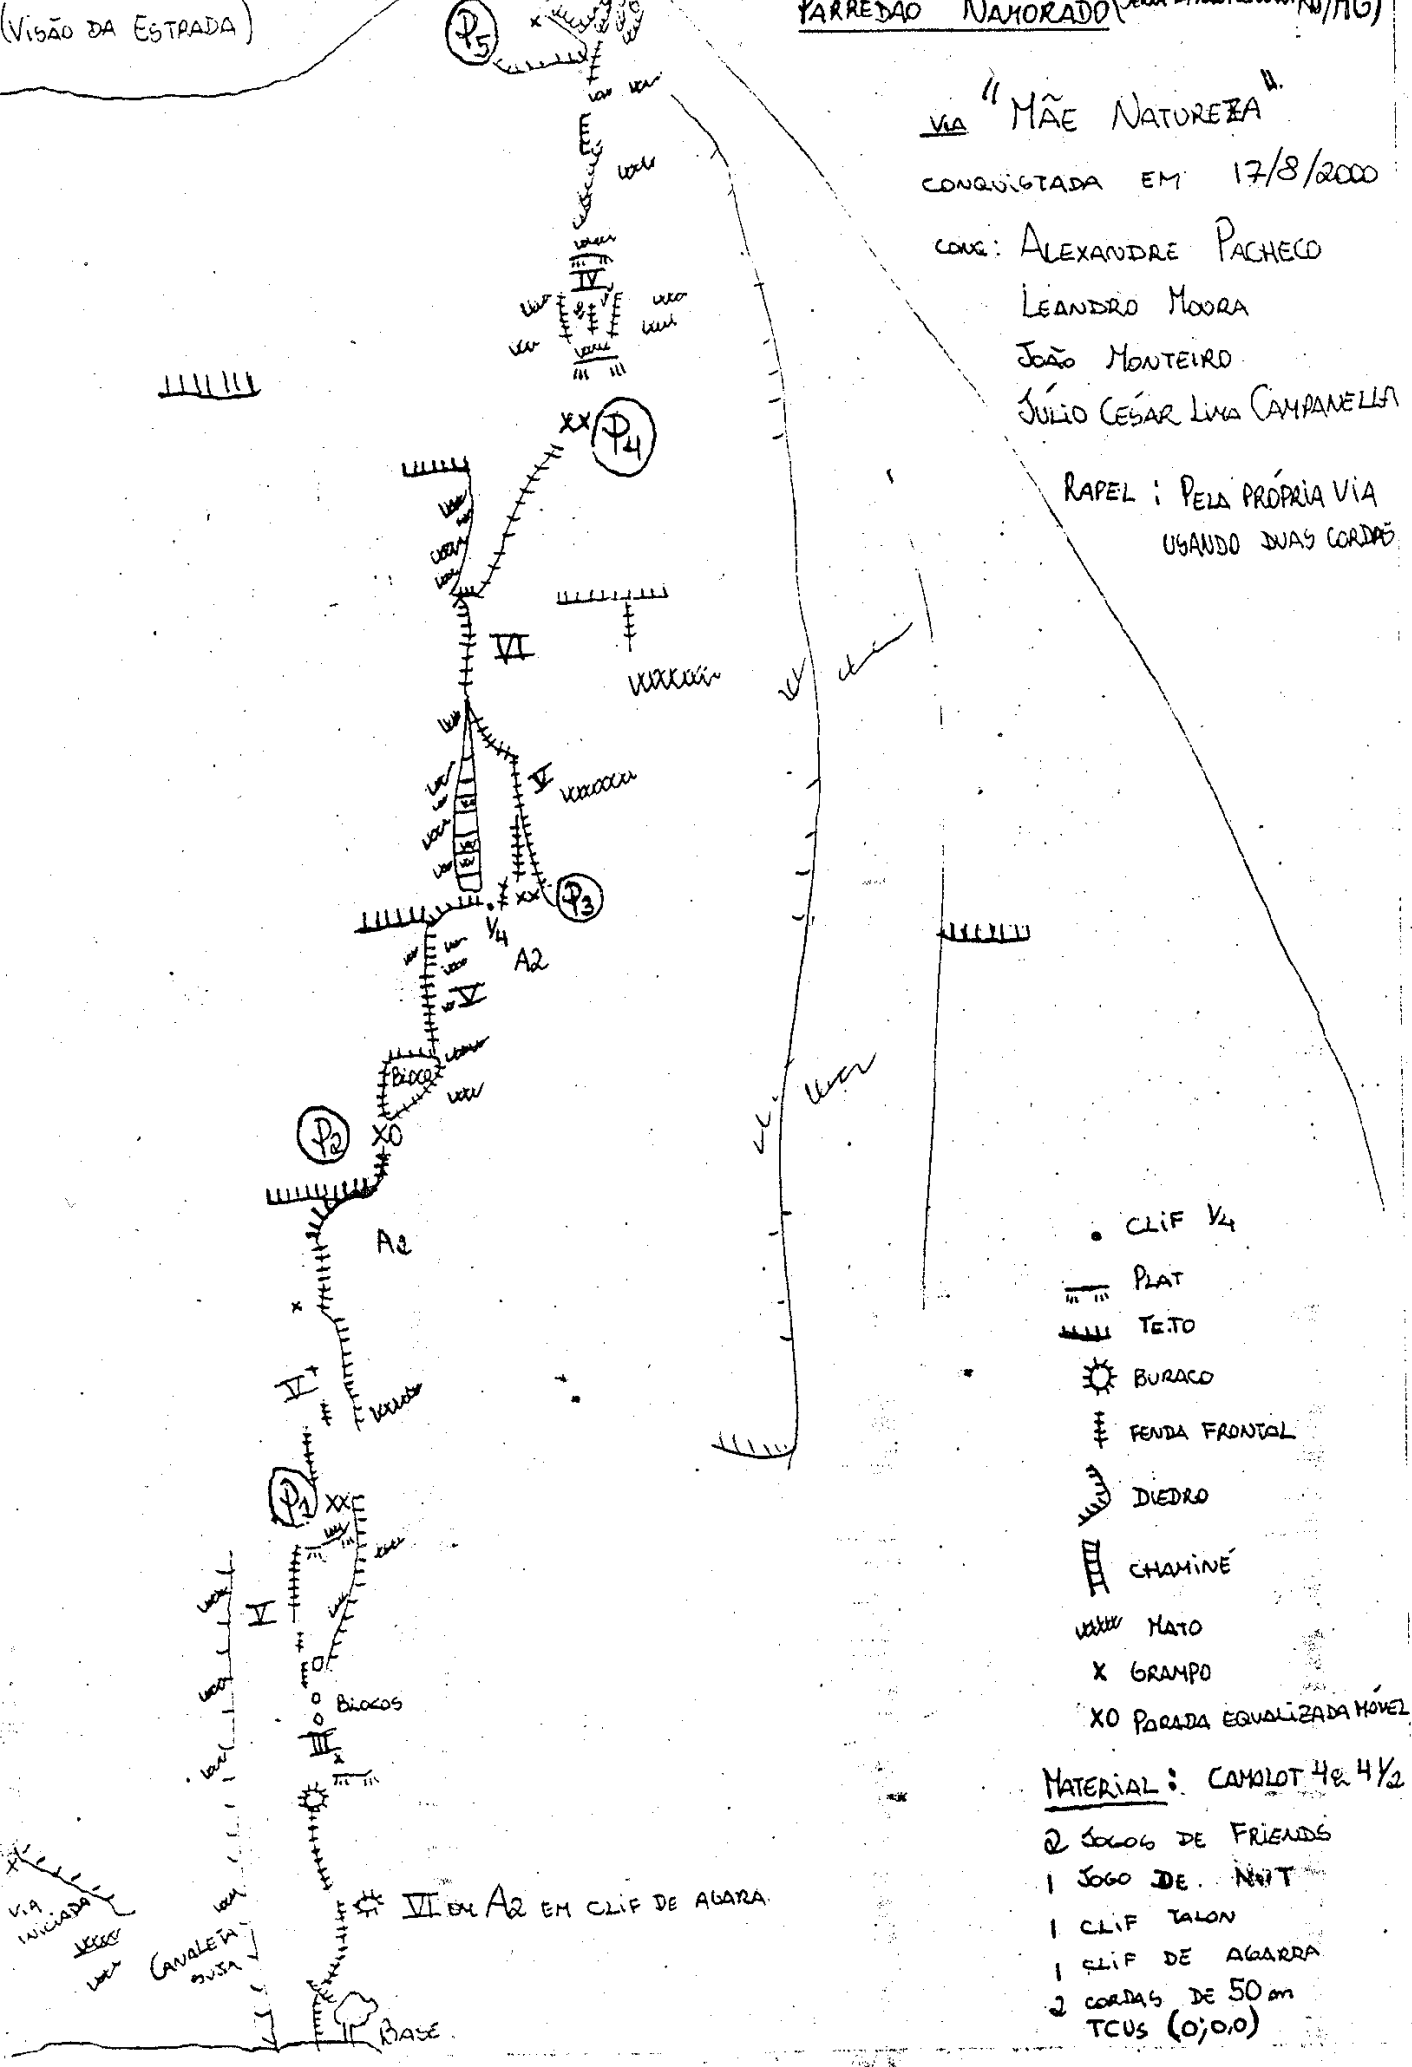 (VISÃO DA ESTRADA)
PARREDÃO NAMORADO
P5
VIA "MÃE NATUREZA"
CONQUISTADA EM 17/8/2000
CONQ: ALEXANDRE PACHECO
LEANDRO MOURA
JOÃO MONTEIRO
JÚLIO CESÁR LIMA CAMPANELLA
RAPEL: PELA PRÓPRIA VIA
USANDO DUAS CORDAS
IV
XX P4
VI
V
XX P3
1/4
A2
V
BLOCO
P2
XO
A2
V+
P1 XX
V
BLOCOS
III
VI OU A2 EM CLIF DE AGARA
VIA
INICIADA
CANALETA
SUJA
BASE
CLIF 1/4
PLAT
TETO
BURACO
FENDA FRONTAL
DIEDRO
CHAMINÉ
MATO
X GRAMPO
XO PARADA EQUALIZADA MÓVEL
MATERIAL: CAMALOT 4 e 4 1/2
2 JOGOS DE FRIENDS
1 JOGO DE NUT
1 CLIF TALON
1 CLIF DE AGARRA
2 CORDAS DE 50 m
TCUS (0;0,0)